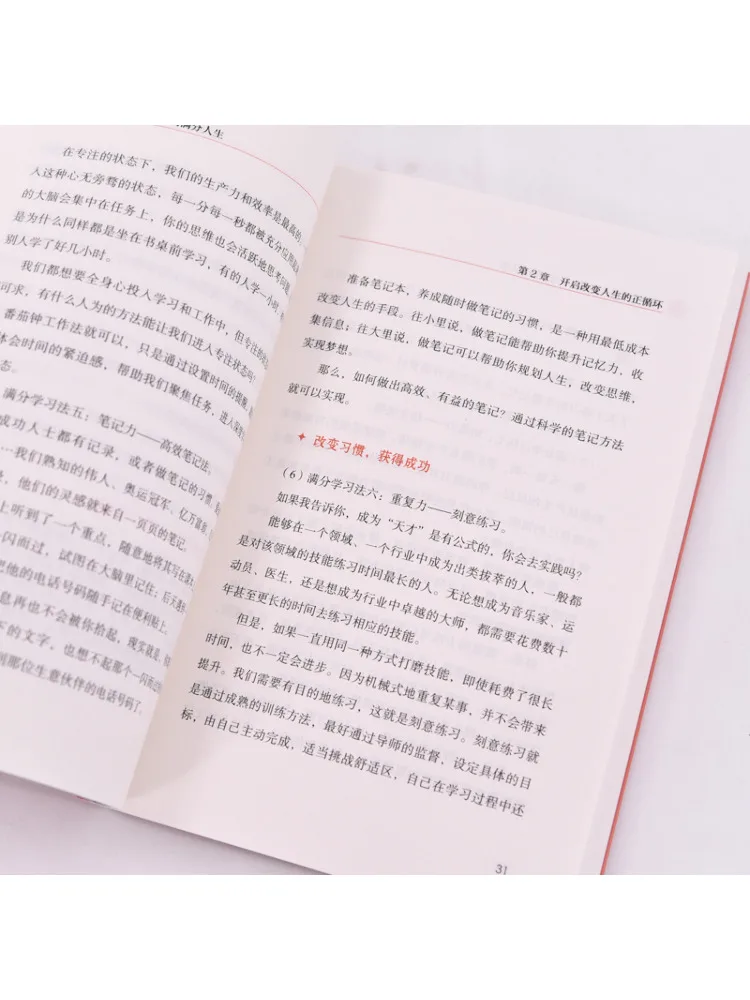 满分人生
在专注的状态下，我们的生产力和效率是最高的
人这种心无旁骛的状态，每一分每一秒都被充分应用
的大脑会集中在任务上，你的思维也会活跃地思考问题
是为什么同样都是坐在书桌前学习，有的人学一小时
别人学了好几小时。
我们都想要全身心投入学习和工作中，但专注的
可求，有什么人为的方法能让我们进入专注状态吗？
番茄钟工作法就可以，只是通过设置时间的提醒
体会时间的紧迫感，帮助我们聚焦任务，进入
态。
满分学习法五：笔记力——高效笔记法。
成功人士都有记录，或者做笔记的习惯
…我们熟知的伟人、奥运冠军、亿万富翁
，他们的灵感就来自一页页的笔记。
上听到了一个重点，随意地将其写在
一闪而过，试图在大脑里记住；后天
把他的电话号码随手记在便利贴上。
息再也不会被你拾起，现实就是
下的文字，也想不起那个一闪而过
到那位生意伙伴的电话号码了。
第2章 开启改变人生的正循环
准备笔记本，养成随时做笔记的习惯，是一种用最低成本
改变人生的手段。往小里说，做笔记能帮助你提升记忆力，收
集信息；往大里说，做笔记可以帮助你规划人生，改变思维，
实现梦想。
那么，如何做出高效、有益的笔记？通过科学的笔记方法
就可以实现。
✦ 改变习惯，获得成功
（6）满分学习法六：重复力——刻意练习。
如果我告诉你，成为“天才”是有公式的，你会去实践吗？
能够在一个领域、一个行业中成为出类拔萃的人，一般都
是对该领域的技能练习时间最长的人。无论想成为音乐家、运
动员、医生，还是想成为行业中卓越的大师，都需要花费数十
年甚至更长的时间去练习相应的技能。
但是，如果一直用同一种方式打磨技能，即使耗费了很长
时间，也不一定会进步。因为机械式地重复某事，并不会带来
提升。我们需要有目的地练习，这就是刻意练习。刻意练习就
是通过成熟的训练方法，最好通过导师的监督，设定具体的目
标，由自己主动完成，适当挑战舒适区，自己在学习过程中还
31